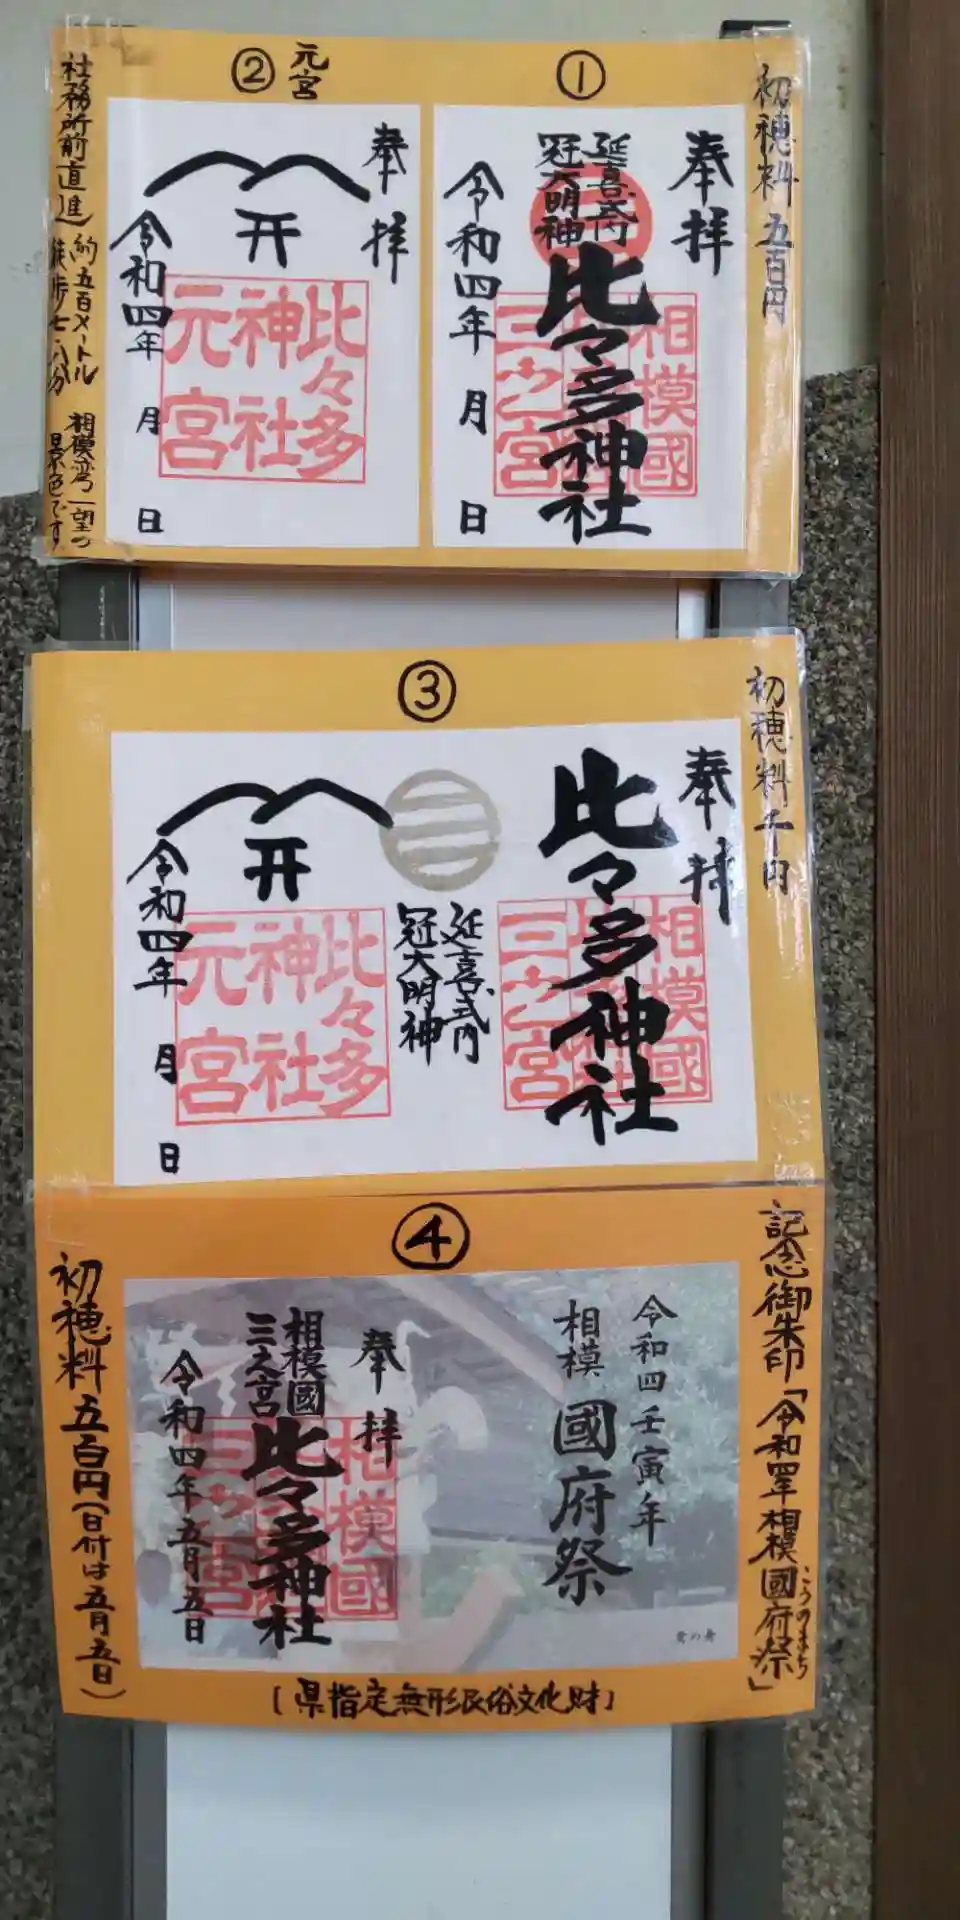 初穂料 五百円
①
奉拝
延喜式内
冠大明神
比々多神社
相模國
三之宮
令和四年 月 日
② 元宮
奉拝
開
比々多
神社
元宮
令和四年 月 日
社務所前直進
約五百メートル
徒歩七・八分
相模湾一望の
景色です
初穂料 千円
③
奉拝
比々多神社
相模國
三之宮
延喜式内
冠大明神
開
比々多
神社
元宮
令和四年 月 日
④
記念御朱印「令和四年相模國府祭」
こうのまち
令和四壬寅年
相模 國府祭
鷺の舞
奉拝
相模國
三之宮
比々多神社
相模國
三之宮
令和四年 五月五日
初穂料 五百円(日付は五月五日)
[県指定無形民俗文化財]